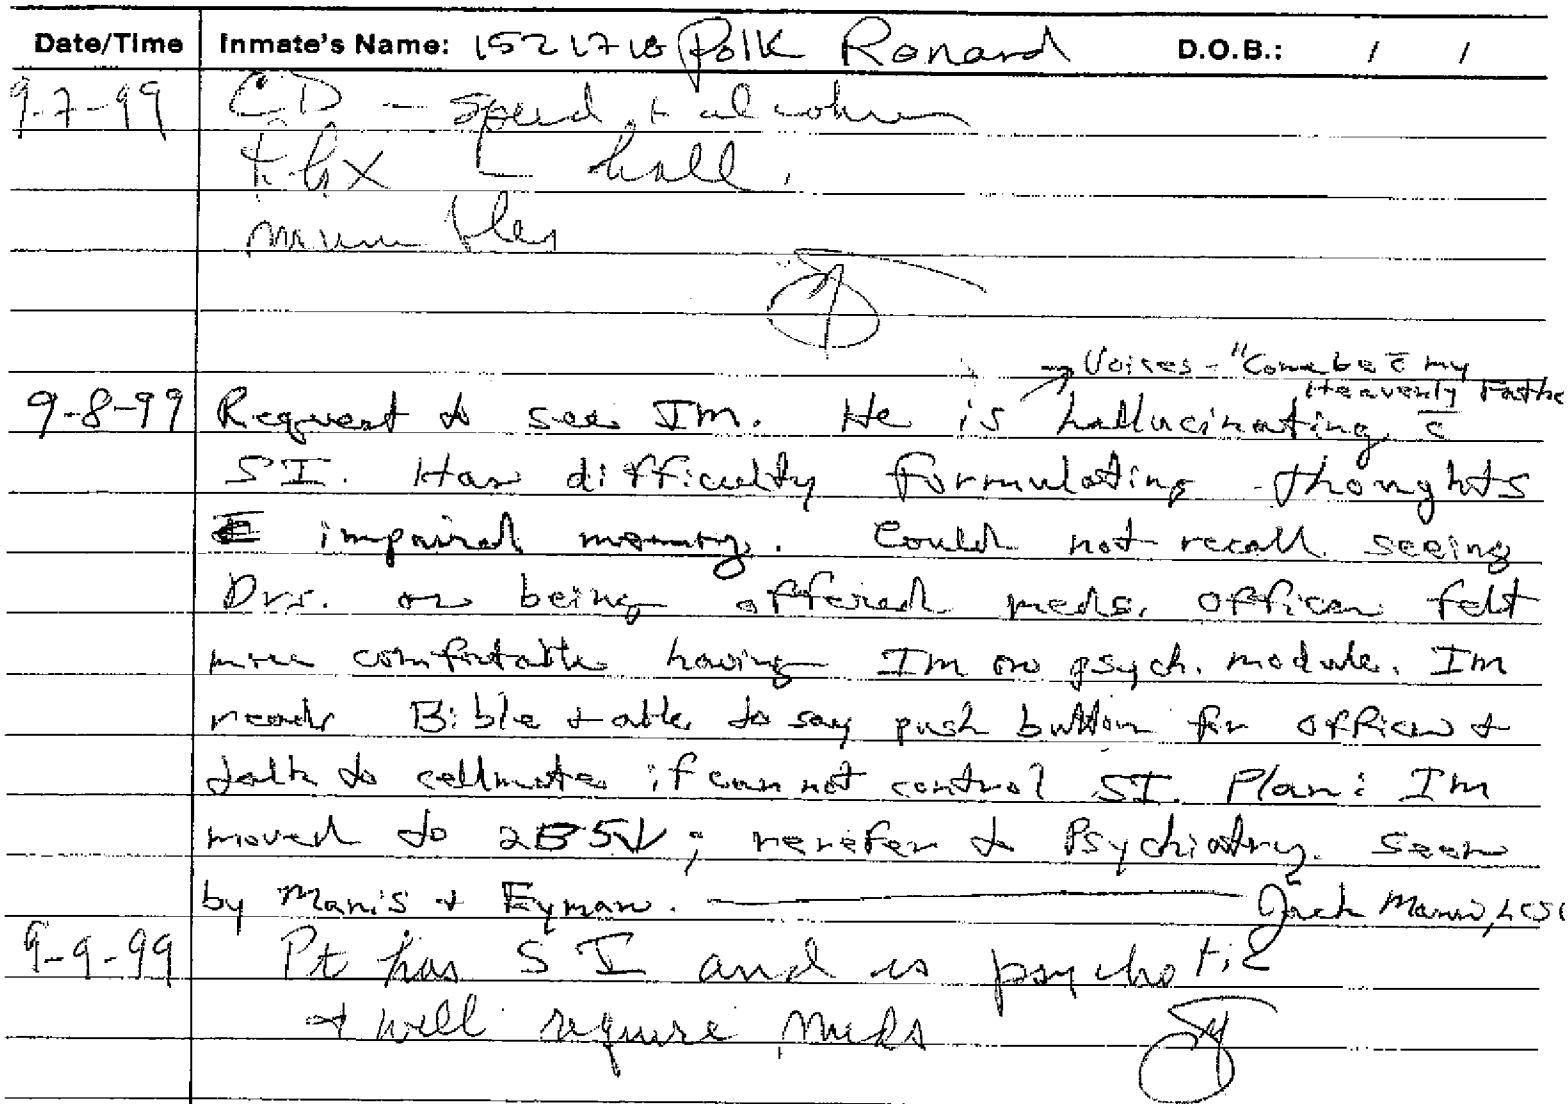 Date/Time Inmate's Name: Polk Ronard D.O.B.: / /
9-7-99 CD - speed + alcohol
hx hall.
→ Voices - "Come be c̄ my
Heavenly Fathe
9-8-99 Request to see Im. He is hallucinating c̄
SI. Has difficulty formulating thoughts
impaired memory. Could not recall seeing
Drs. or being offered meds. Officer felt
more comfortable having Im on psych. module. Im
reads Bible + able to say push button for officer +
talk to cellmate if can not control SI. Plan: Im
moved to 2B5↓; to Psychiatry. Seen
by Manis + Eyman. Jack Manis, LCS
9-9-99 Pt has SI and is psychotic
+ will require meds